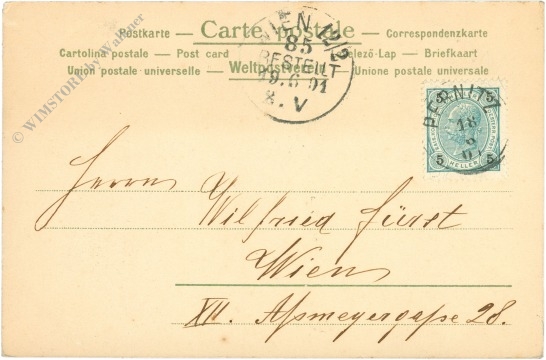 Postkarte — Carte postale — Correspondenzkarte
Cartolina postale — Post card — Levelező-Lap — Briefkaart
Union postale universelle — Weltpostverein — Unione postale universale
© WIMSTORE by Wallner
WIEN 12/2
85
BESTELLT
19.6.01
8.V
PERNITZ
18
6
01
5 5
5 5
HELLER
Herrn Wilfried Fürst
Wien
XII. Aßmeyergaße 28.